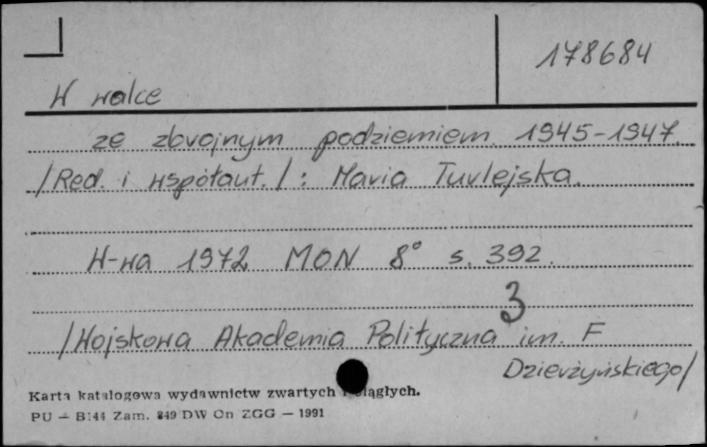 178684
W walce
ze zbrojnym podziemiem 1945-1947.
/Red. i współaut./: Maria Turlejska.
W-wa 1972 MON 8° s. 392.
3
/Wojskowa Akademia Polityczna im. F
Dzierżyńskiego/
Karta katalogowa wydawnictw zwartych i ciągłych.
PU — B144 Zam. 849 DW On ZGG — 1991